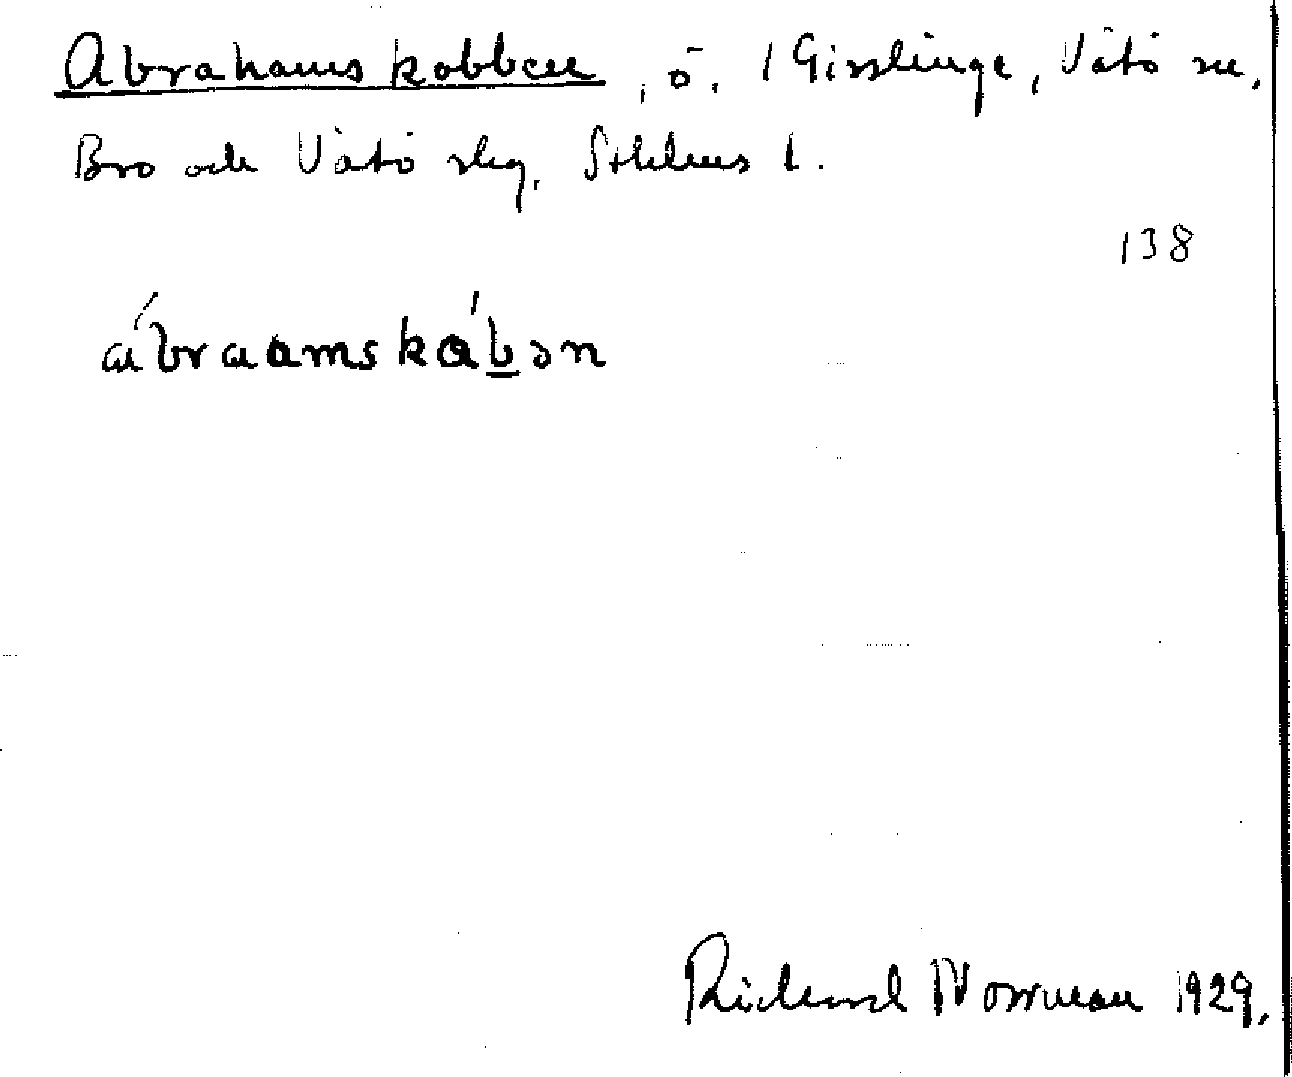 Abrahamskobben, ö, i Gisslinge, Vätö sn,
Bro och Vätö skg, Sthlms l.
138
ábraamskábən
Richard Norrman 1929.